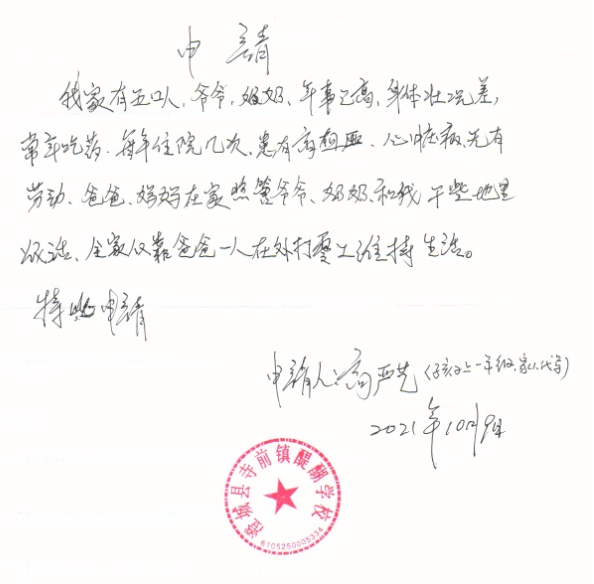 申请
我家有五口人,爷爷、奶奶、年事已高,身体壮况差,
常年吃药、每年住院几次,患有高 心脏病,无有
劳动、爸爸、妈妈在家照管爷爷、奶奶、和我 干些地里
活、全家仅靠爸爸一人在外打零工维持生活。
特此申请
申请人:高严艺(孩子上一年级,家人代写)
2021年10月9日
澄城县寺前镇醍醐学校
6105250005334